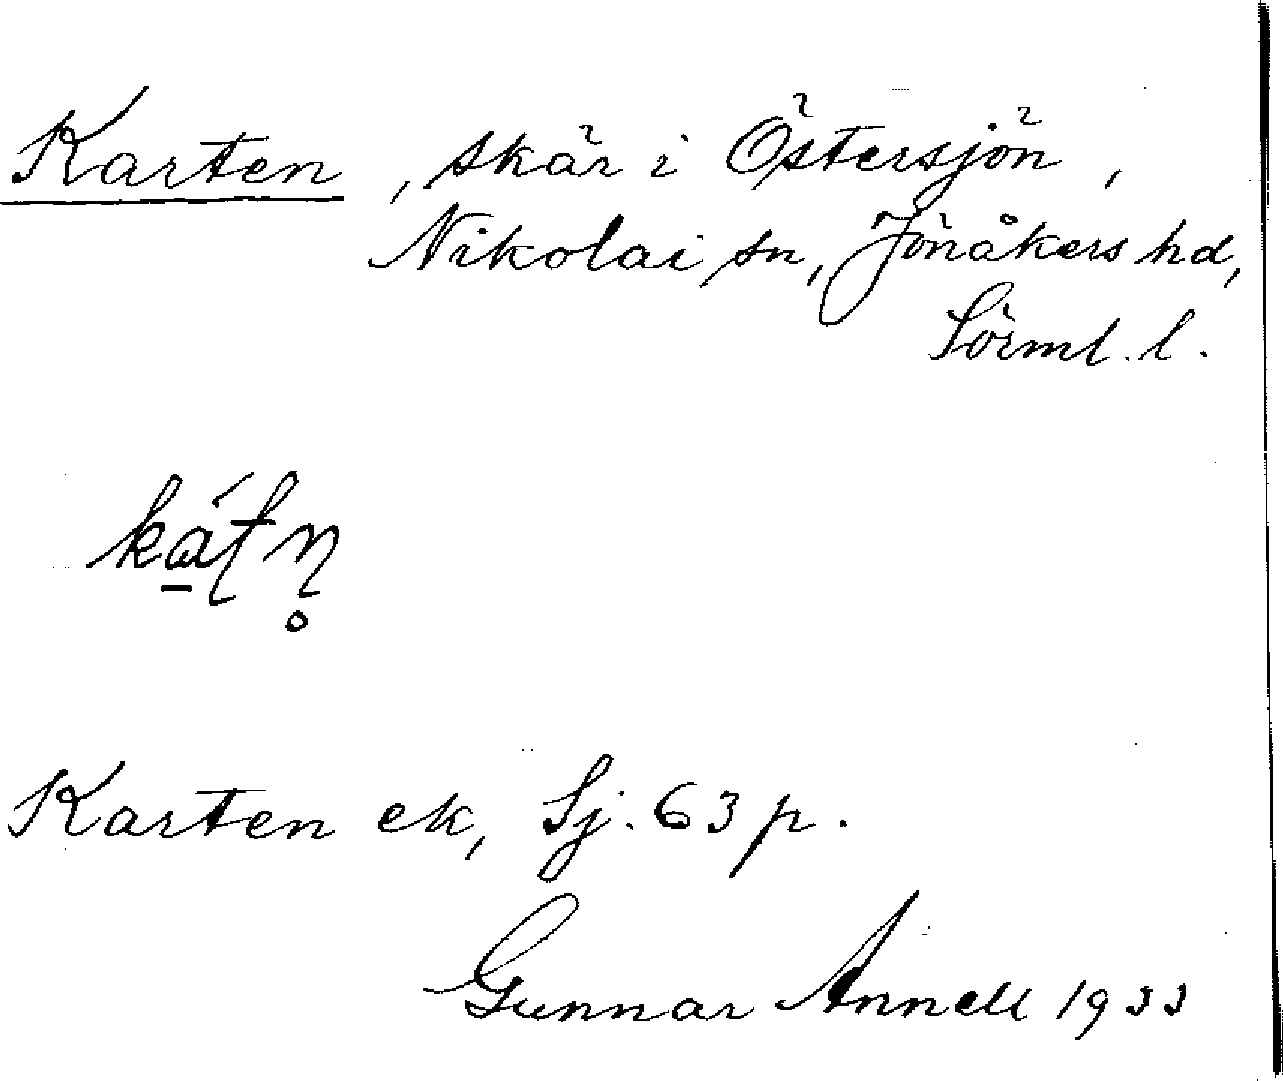 Karten, skär i Östersjön,
Nikolai sn, Jönåkers hd,
Sörml. l.
ká̱ʈɳ̥
Karten ek, Sj. 63 p.
Gunnar Annell 1933